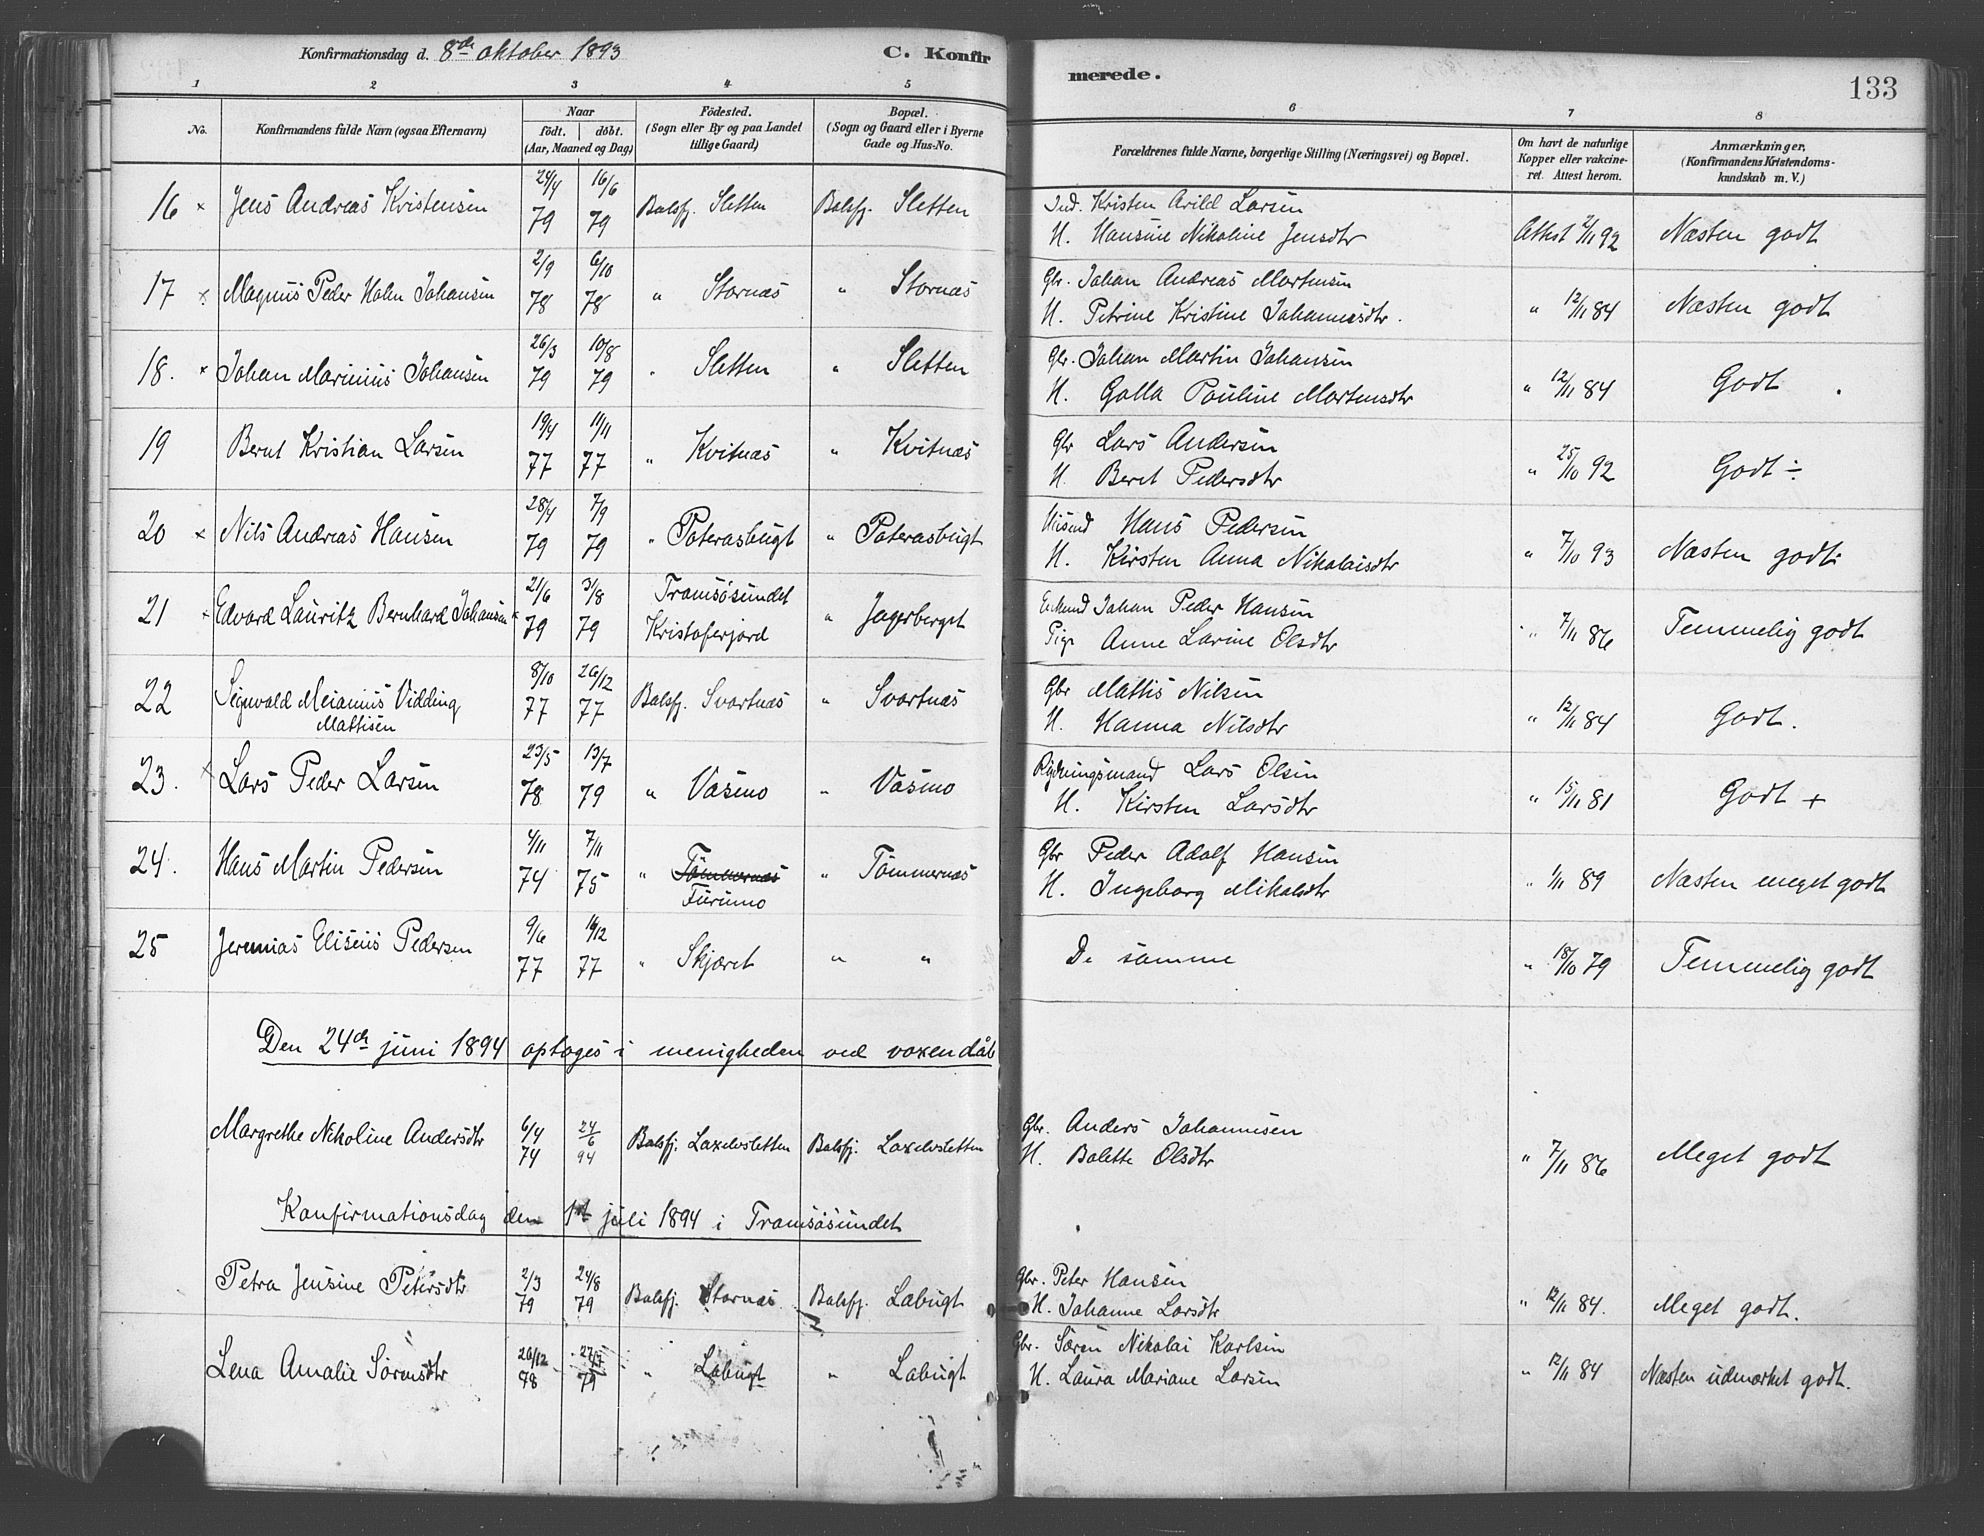 Konfirmationsdag d. 8de oktober 1893 C. Konfir merede. 133
1 2 3 4 5 6 7 8
No. Konfirmandens fulde Navn (ogsaa Efternavn) Naar født. døbt. (Aar, Maaned og Dag) Fødested. (Sogn eller By og paa Landet tillige Gaard) Bopæl. (Sogn og Gaard eller i Byerne Gade og Hus-No. Forældrenes fulde Navne, borgerlige Stilling (Næringsvei) og Bopæl. Om havt de naturlige Kopper eller vakcineret. Attest herom. Anmærkninger. (Konfirmandens Kristendomskundskab m. V.)
16 × Jens Andreas Kristensen 24/4 79 16/6 79 Balsfj. Sletten Balsfj. Sletten Ind. Kristen Arild Larsen
H. Hansine Nikoline Jensdtr Attest 2/11 92 Næsten godt
17 × Magnus Peder Holm Johansen 2/9 78 6/10 78 " Stornæs " Stornæs Gbr. Johan Andreas Mortensen
H. Petrine Kristine Johannesdtr. " 12/11 84 Næsten godt
18. × Johan Marinius Johansen 26/3 79 10/8 79 " Sletten " Sletten Gbr. Johan Martin Johansen
H. Golla Pauline Mortensdtr " 12/11 84 Godt .
19 Bernt Kristian Larsen 19/4 77 11/11 77 " Kvitnæs " Kvitnæs Gbr Lars Andersen
H. Beret Pedersdtr " 25/10 92 Godt ÷
20 × Nils Andreas Hansen 28/4 79 7/9 79 " Paterasbugt " Paterasbugt Hans Pedersen
H. Kirsten Anna Nikolaisdtr " 7/10 93 Næsten godt
21 × Edvard Lauritz Bernhard Johansen × 21/6 79 3/8 79 Tromsøsundet Kristoferjord " Jagerberget Johan Peder Hansen
Pige Anne Larine Olsdtr " 7/11 86 Temmelig godt
22 Sigvald Meianius Vidding Mattisen 8/10 77 26/12 77 Balsfj. Svartnæs " Svartnæs Gbr Mattis Nilsen
H. Hanna Nilsdtr " 12/11 84 Godt.
23. × Lars Peder Larsen 23/5 78 13/7 79 " Vasmo " Vasmo Rydningsmand Lars Olsen
H. Kirsten Larsdtr " 15/11 81 Godt +
24. Hans Martin Pedersen 4/11 74 7/11 75 " Tømmernæs Furumo " Tømmernæs Gbr Peder Adolf Hansen
H. Ingeborg Mikalsdtr " 1/11 89 Næsten meget godt
25 Jeremias Eliseus Pedersen 9/6 77 16/12 77 " Skjæret " " De samme " 18/10 79 Temmelig godt
Den 24de juni 1894 optoges i menigheden ved voxendåb
Margrethe Nikoline Andersdtr 6/4 74 24/6 94 Balsfj. Laxelvsletten Balsfj. Laxelvsletten Gbr. Anders Johannesen
H. Balette Olsdtr " 7/11 86 Meget godt
Konfirmationsdag den 1st juli 1894 i Tromsøsundet
Petra Jensine Petersdtr 2/3 79 24/8 79 Balsfj. Stornæs Balsfj. Labugt Gbr. Peter Hansen
H. Johanne Larsdtr " 12/11 84. Meget godt.
Lena Amalie Sørensdtr 26/12 78 79 " Labugt " Labugt Gbr. Søren Nikolai Karlsen
H. Laura Mariane Larsen " 12/11 84 Næsten udmærket godt.